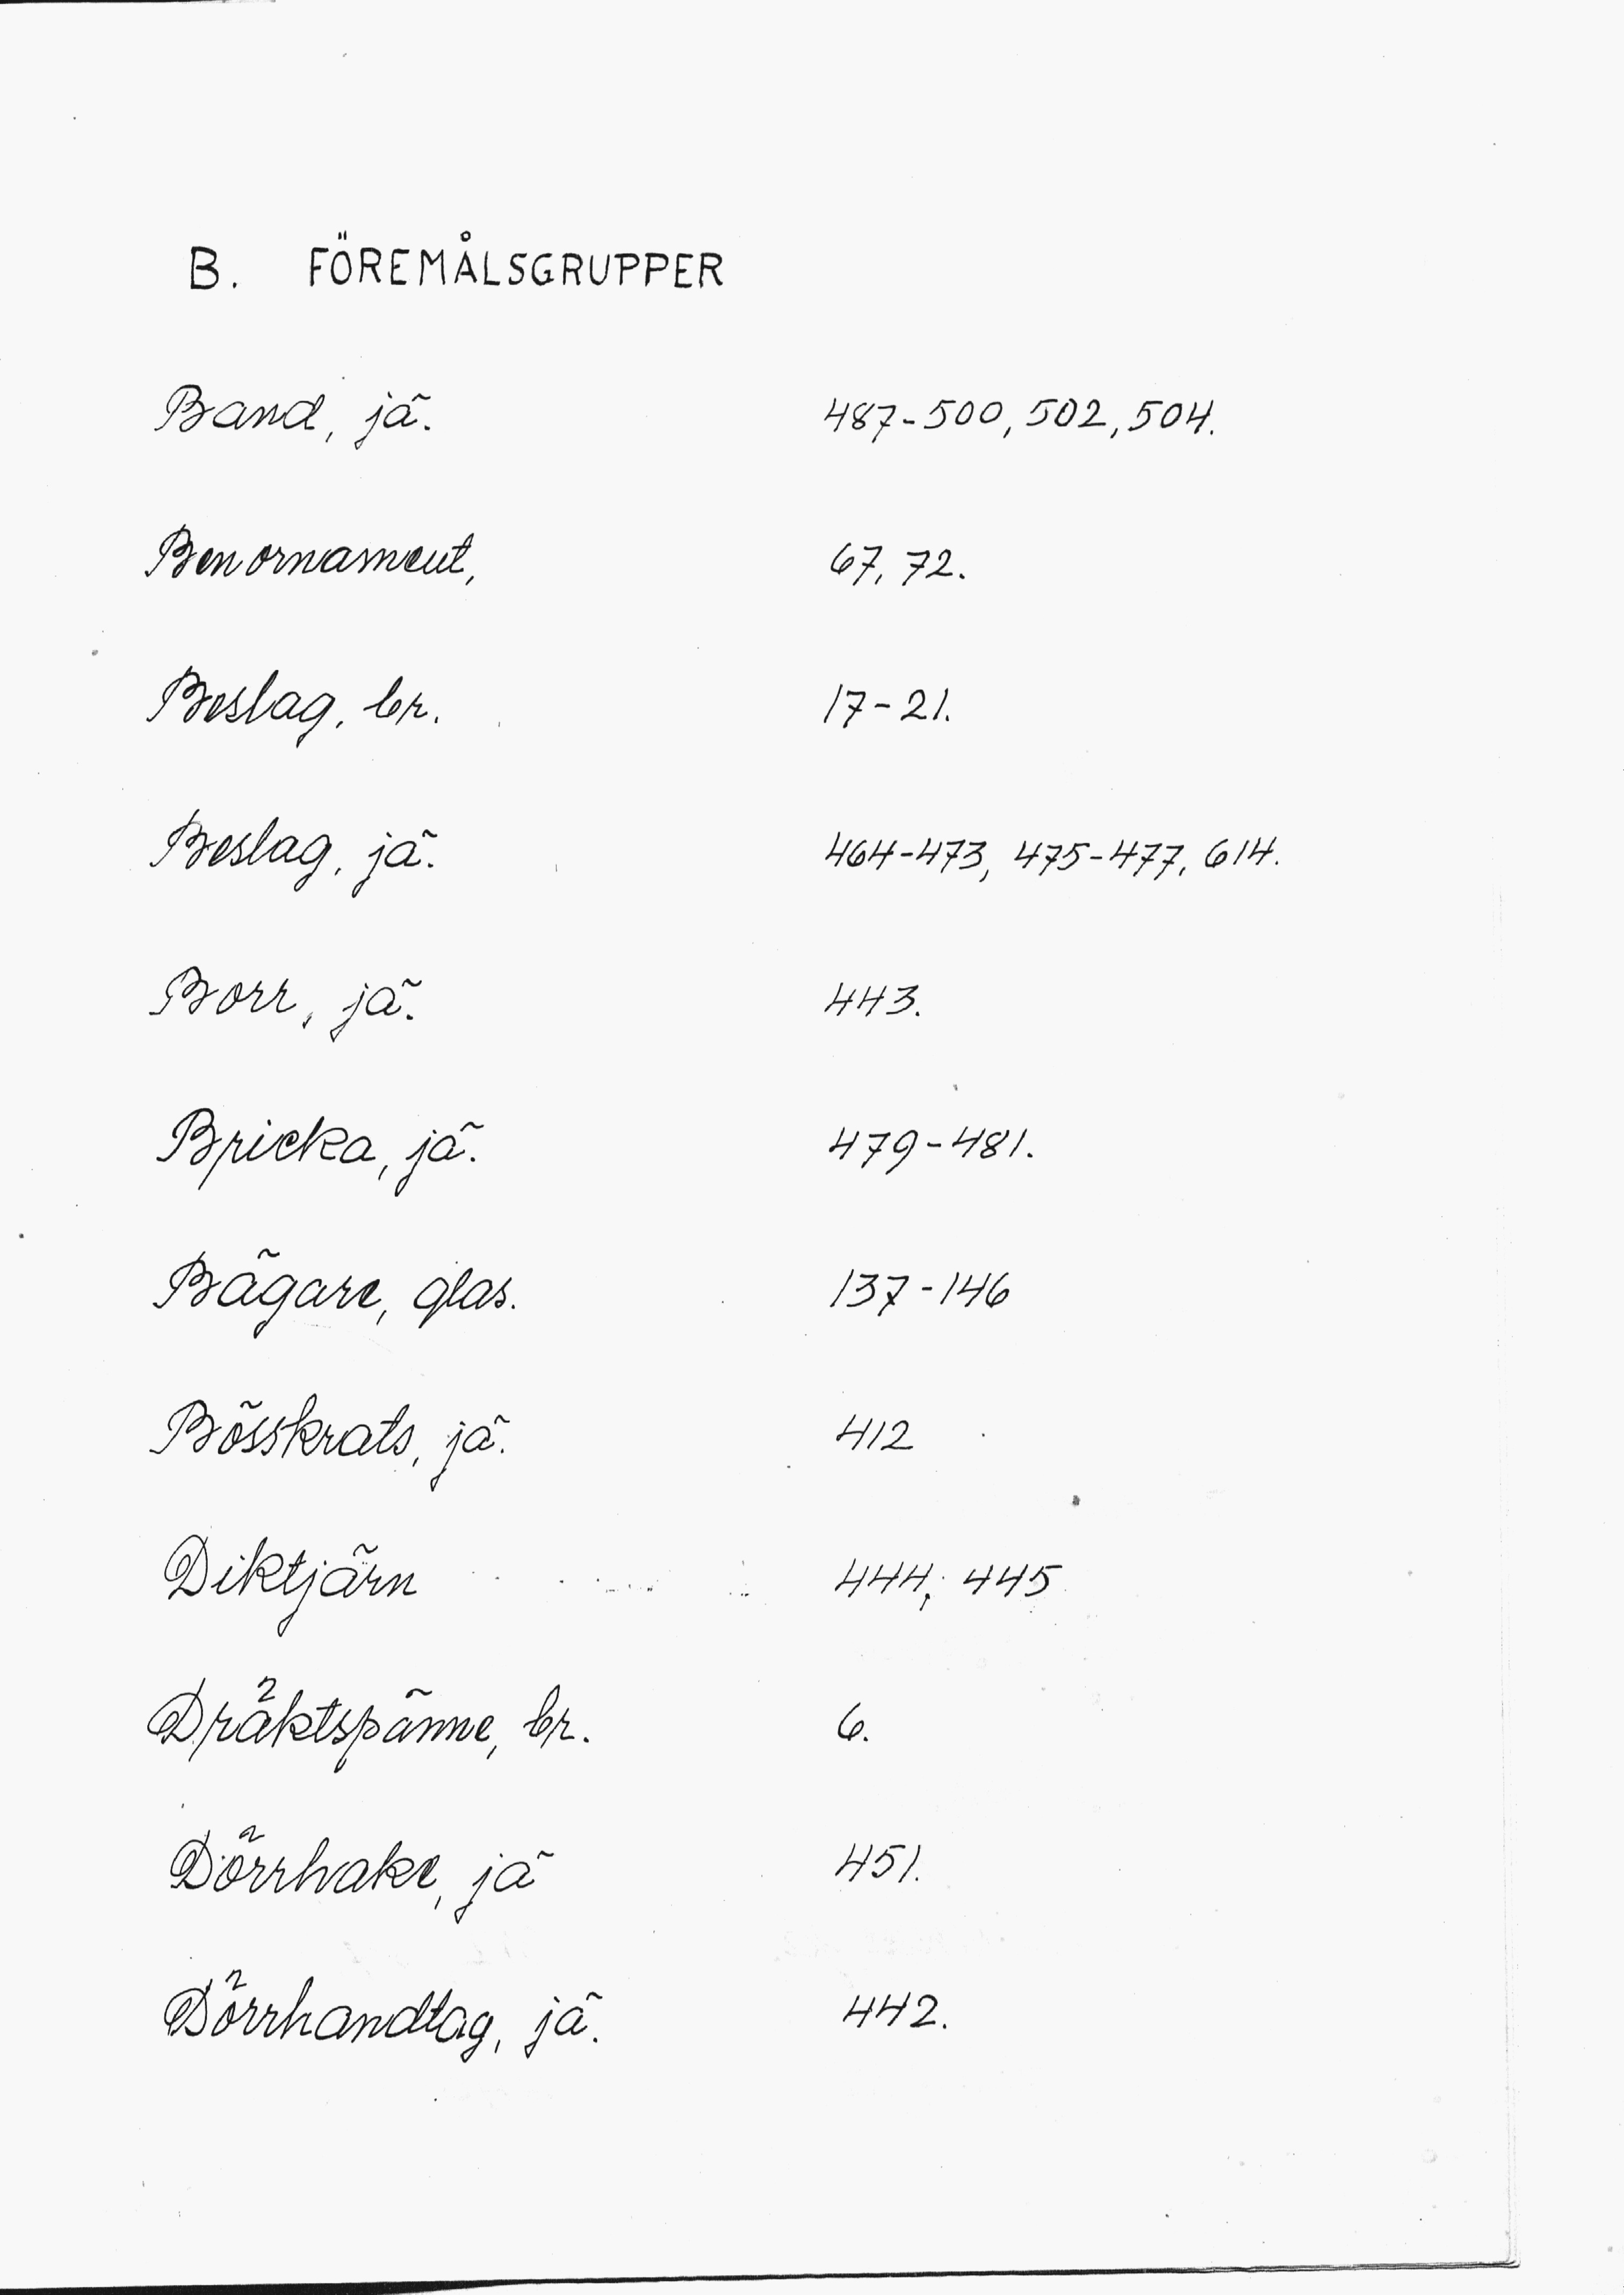 B. FÖREMÅLSGRUPPER
Band, jä. 487-500, 502, 504.
Benornament, 67, 72.
Beslag, br. 17-21.
Beslag, jä. 464-473, 475-477, 614.
Borr, jä. 443.
Bricka, jä. 479-481.
Bägare, glas. 137-146
Bösskrats, jä. 412
Diktjärn 444, 445
Dräktspänne, br. 6.
Dörrhake, jä 451.
Dörrhandtag, jä. 442.